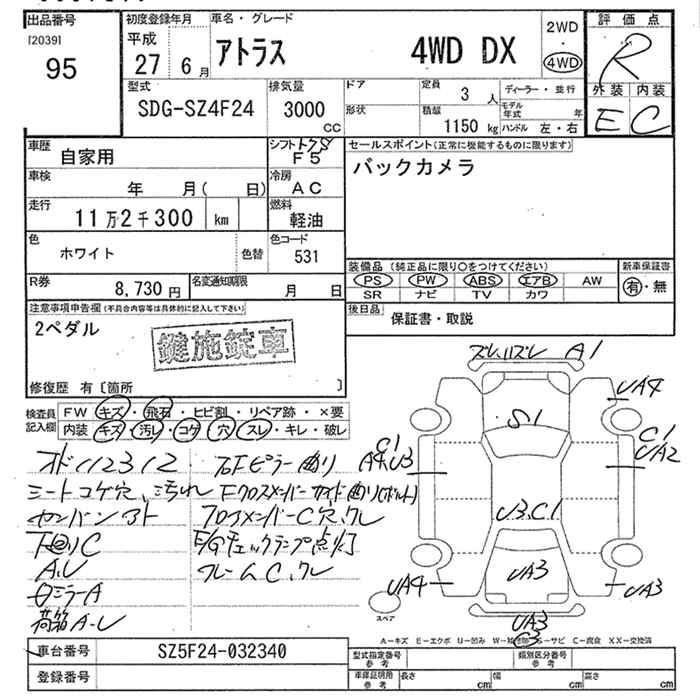 出品番号 初度登録年月 車名・グレード 2WD 評価点
[2039] 平成 アトラス 4WD DX ・ R
95 27年 6月 4WD
型式 排気量 ドア 定員 3人 ディーラー・並行 外装 内装
SDG-SZ4F24 3000cc 形状 積載 1150kg モデル年式 年 E C
ハンドル 左・右
車歴 自家用 シフト F5 セールスポイント(正常に機能するものに限ります)
車検 年 月( 日) 冷房 AC バックカメラ
走行 11万2千300 km 燃料 軽油
色 ホワイト 色替 色コード 531
装備品(純正品に限り○をつけてください) 新車保証書
R券 8,730円 名変通知期限 月 日 PS PW ABS エアB AW 有・無
SR ナビ TV カワ
注意事項申告欄(不具合内容等は具体的に記入して下さい) 後日品 保証書・取説
2ペダル
鍵施錠車
修復歴 有〔箇所 〕
検査員記入欄 FW キズ・飛石・ヒビ割・リペア跡・×要
内装 キズ・汚レ・コゲ・穴・スレ・キレ・破レ
ズレ A1
UA4
S1
C1
UA2
C1
A4.U3
オド112312 右Fピラー曲り
シートコゲ穴、汚れ Fクロスメンバーガイド曲り(ボルト)
カンバンアト フロアメンバーC穴、クレ
下回りC E/Gチェックランプ点灯
A.U フレームC、クレ
ミラーA
荷箱A-U
U3.C1
UA3
UA4
UA3
UA3
C3
スペア
A=キズ E=エクボ U=凹み S=サビ C=腐食 XX=交換済
車台番号 SZ5F24-032340 型式指定番号 参考 類別区分番号 参考
登録番号 車庫証明用 参考 長さ cm 幅 cm 高さ cm